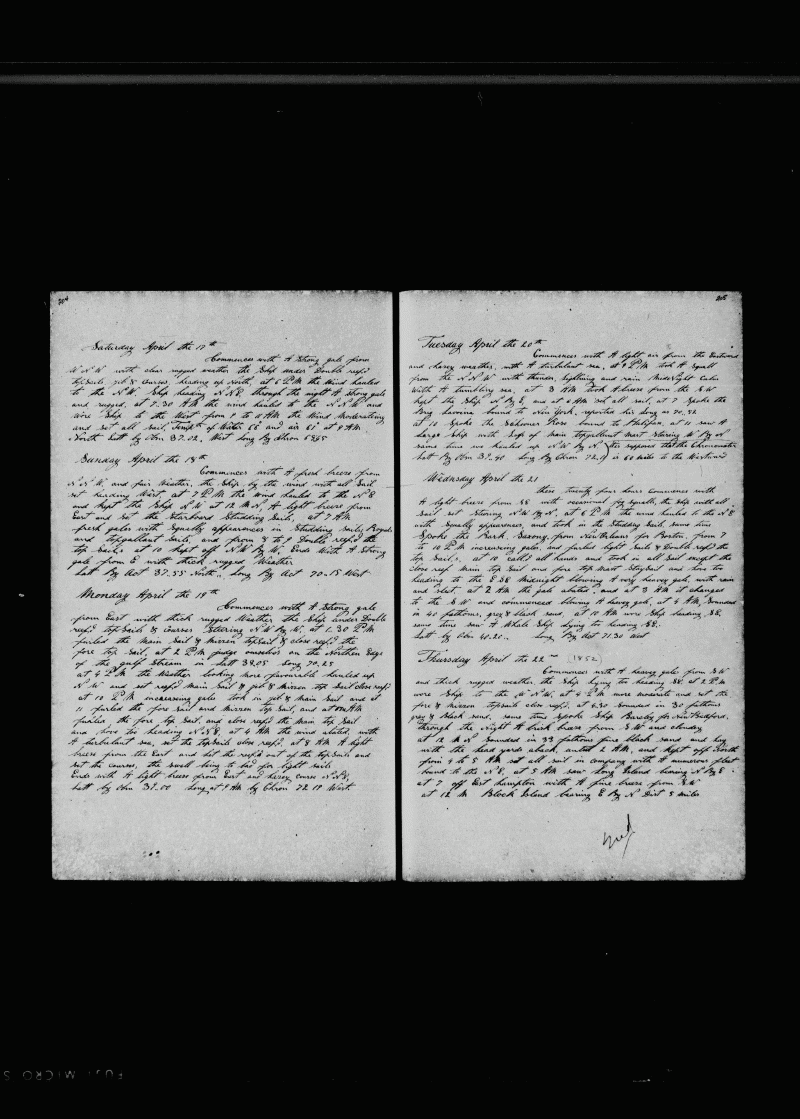 204
Saturday April the 17th
Commences with A Strong gale from
W N W with clear rugged weather the Ship under Double reef'd
topsails jib & Courses heading up North, at 6 P.M. the Wind hauled
to the N.W. Ship heading N.N.E. through the night A Strong gale
and rugged, at 7.30 AM the wind hauled to the N.N.W and
wore Ship to the West from 9 to 11 AM the Wind Moderating
and set all sail, Tempth of Water 66° and air 61° at 9 AM
North Latt By Obn 37.02, West Long By Chron
Sunday April the 18th
Commences with A fresh breeze from
N N W, and fair Weather, the Ship by the wind with all Sail
set heading West, at 7 P.M the wind hauled to the N E
and kept the Ship N.W at 12 M.N, A light breeze from
East and set the Starboard Studding Sails, at 7 AM
fresh gales with Squally appearances in Studding Sails, Royals
and topgallant Sails, and from 8 to 9 Double reef'd the
top Sails at 10 kept off N.W By W, Ends With A Strong
gale from E with thick rugged Weather
Latt By Act 37.55 North, Long By Act 70.15 West
Monday April the 19th
Commences with A Strong gale
from East with thick rugged Weather the Ship under Double
reef'd topsails & Courses Steering N.W By W, at 1.30 P.M
furled the Main Sail & Mizzen topsail & close reef'd the
fore top Sail, at 2 P.M judge ourselves on the Northern Edge
of the gulf Stream in Latt 38.05 Long 70.25
at 4 P.M the Weather looking more favourable hauled up
N W and set reef'd Main Sail & jib & Mizzen top Sail close reef'd
at 10 P.M increasing gales took in jib & Main Sail and at
11 furled the fore Sail and Mizzen top Sail, and at AM
furled the fore top Sail, and close reef'd the Main top Sail
and hove too heading N.N.E, at 4 AM the wind abated, with
A turbulent sea, set the topsails close reef'd, at 8 AM A light
breeze from the East and let the reef's out of the topsails and
set the courses, the swell being to bad for light sails
Ends with A light breeze from East and hazey course N.N.E,
Latt by Obn 39.00 Long at 9 AM by Chron 72.19 West
205
Tuesday April the 20th
Commences with A light air from the Eastward
and hazey weather, with A turbulent sea, at 9 P.M took A squall
from the N.N.W with thunder, lightning and rain Midnight Calm
With A tumbling sea, at 3 AM took A breeze from the S.W
kept the Ship N By E, and at 6 AM set all sail, at 7 Spoke the
Brig Lavinia bound to New York, reported his Long as 70.52
at 10 Spoke the Schooner Rose bound to Halifax, at 11 saw A
Large Ship with loss of Main topgallant Mast Steering W By N
same time we hauled up N.W By N. suppose that the Chronometer
Latt By Obn 39.40 Long By Chron 72. is 60 miles to the Westward
Wednsday April the 21
these twenty four hours Commences with
A light breeze from SE with occasional fog squalls, the Ship with all
Sail set Steering N.W By N, at 6 P.M the wind hauled to the N.E
with Squally appearances, and took in the Studding Sails, same time
Spoke the Bark Saxony, from New Orleans for Boston, from 7
to 10 P.M increasing gales, and furled light Sails & Double reef'd the
top Sails, at 10 call'd all hands and took in all Sail except the
close reef Main top Sail and fore top Mast Stay Sail and hove too
heading to the E SE Midnight blowing A very heavy gale, with rain
and Sleet, at 2 AM the gale abated, and at 3 AM it changes
to the S W and commenced blowing A heavey gale, at 4 AM, Sounded
in 41 fathoms, grey & black sand, at 10 AM wore Ship heading SE
same time saw A Whale Ship lying too heading SE
Latt by Obn 40.20, Long By Act 71.30 West
Thursday April the 22nd (1852)
Commences with A heavey gale from S W
and thick rugged weather the Ship lying too heading SE at 2 P.M
wore Ship to the W N.W, at 4 P.M more moderate and set the
fore & mizzen topsails close reef'd, at 6.30 Sounded in 30 fathoms
grey & black sand, same time Spoke Ship Barclay for New Bedford,
through the Night A brisk breeze from S W and cloudy
at 12 M N Sounded in 33 fathoms fine black sand and lay
with the head yards aback, until 2 AM, and kept off North
from 4 to 5 AM set all sail in company with A numerous fleet
bound to the N E, at 5 AM saw Long Island bearing N By E
at 7 off East hampton with A fine breeze from S W
at 12 M Block Island bearing E By N Dist 5 miles
FUJI MICRO S